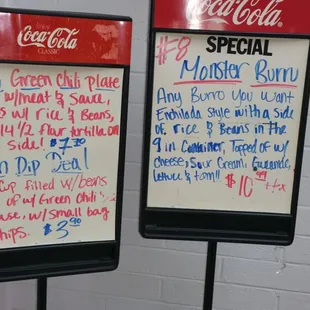 Coca-Cola
CLASSIC
Green Chili Plate
w/meat & Sauce,
s w/ rice & Beans,
14 1/2 flour tortilla on
side! $7.70
Dip Deal
Cup filled w/beans
of w/ Green Chili
use, w/ small bag
hips. $3.90
Coca-Cola
CLASSIC
#8 SPECIAL
Monster Burru
Any Burro You Want
Enchilada style with a side
of rice & Beans in the
9 in Container, Topped of w/
cheese, Sour Cream,
lettuce & tom!! $10.99 + tx